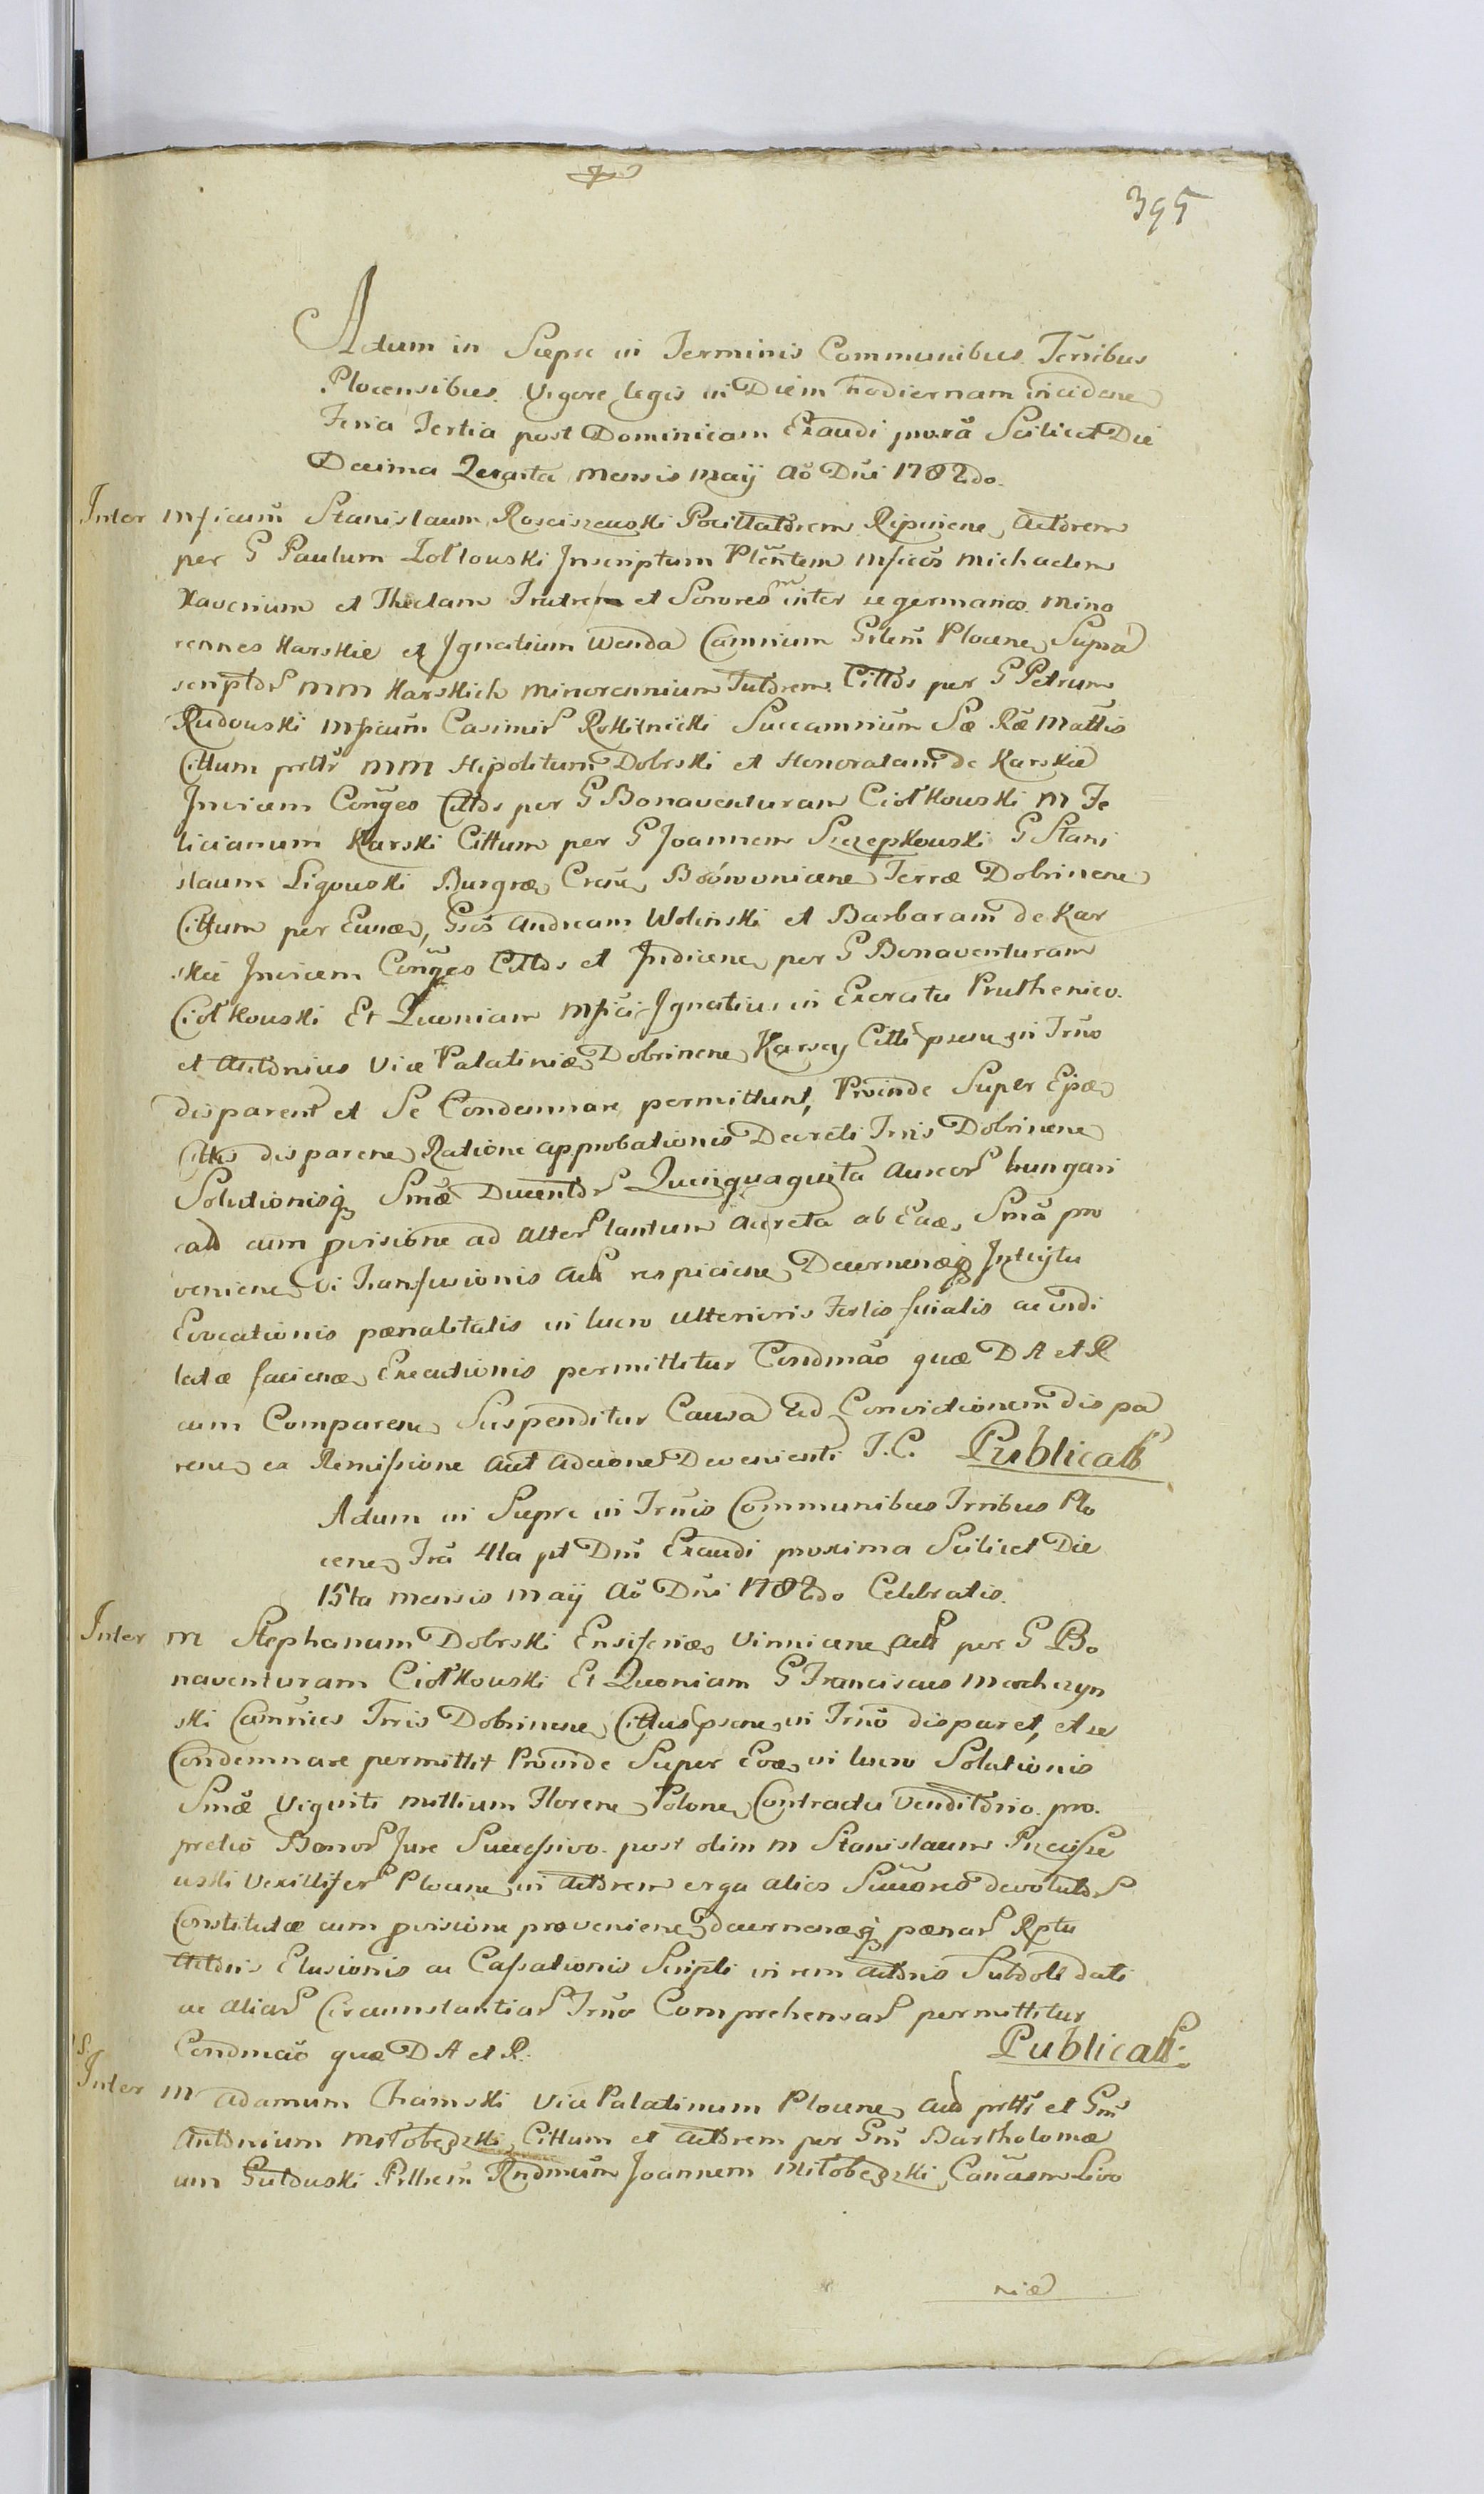 395
Actum in Sierpc in Terminis Communibus Terribus
Plocensibus Vigore legis in Diem hodiernam inciden
Feria Tertia post Dominicam Exaudi proxã Scilicet Die
Decima Quarta Mensis Maij Aõ Dni 1782do.
Inter Mficum Stanislaum Rosciszewski Pocillatorem Ripinen Actorem
per G Paulum Zoltowski Inscriptum Plentem Mficos Michaelem
Xaverium et Theclam Fratrem et Sorores inter se germanos Mino
rennes Karskie et Ignatium Wenda Camrium Gilem Plocen Supra
scriptor MM Karskich Minorennium Tutorem Cittos per G Petrum
Rudowski Mficum Casimir Rokitnicki Succamrium Sæ Ræ Mattis
Cittum prtti MM Hipolitum Dobrski et Honoratam de Karskie
Invicem Conges Cittos per G Bonaventuram Ciołkowski M Fe
licianum Karski Cittum per G Joannem Szczepkowski G Stani
slaum Ligowski Burgræ Cren Bobrownicen Terræ Dobrinen
Cittum per Eund, Gsos Andream Wolinski et Barbaram de Kar
skie Invicem Conges Cittos et Indicen per G Bonaventuram
Ciołkowski Et Quoniam Mfici Ignatius in Exercitu Pruthenico
et Antonius Vice Palatinid Dobrinen Karscy Citti psen in Trno
disparent et Se Condemnare permittunt, Proinde Super Eosd
Cittis disparen Ratione approbationis Decreti Trris Dobrinen
Solutionisq Smæ Ducentor Quinquaginta Aureor hungari
cal cum provisione ad Alter tantum Accreta ab Ead Smã pro
venien vi Transfusionis Act respicien Decernendq Intuitu
Evocationis pœnalitatis in lucro ulterioris Fertio fuialis ac vndi
latæ faciend Executionis permittitur Condmão quæ D A et R
cum Comparen Suspenditur Causa Ad Convictionem dispa
ren ex Remissione Aut Adcionet Devenienti T.C. Publicatt
Actum in Sierpc in Trnis Communibus Trribus Plo
cen Fria 4ta pt Dnm Exaudi proxima Scilicet Die
15ta Mensis Maij Aõ Dni 1782do Celebratis.
Inter M Stephanum Dobrski Ensiferid Vinnicen Act per G Bo
naventuram Ciołkowski Et Quoniam G Franciscus Mocheryn
ski Camrius Trris Dobrinen Cittus psen in Trno disparet, et se
Condemnare permittit Proinde Super Eod in lucro Solutionis
Smæ Viginti Millium Floren Polon Contractu Venditorio pro
pretio Bonor Jure Successivo post olim M Stanislaum Przeisze
wski Vexillifer Plocen in Actorem erga alios Sucores devolutor
Constitutæ cum provisione provenien decernendq pœnar Rptu
Actoris Elusionis ac Cassationis Scripti in rem Actoris Subdole dati
ac aliar Circumstantiar Trno Comprehensar permittitur
Condmcão quæ D A et R. Publicatt.
Inter M Adamum Chamski Vice Palatinum Plocen Act prtti et Gm
Antonium Miłobędzki Cittum et Actorem per Gm Bartholomæ
um Gutowski Plthem Rndmum Joannem Miłobędzki Canucum Livo
niæ